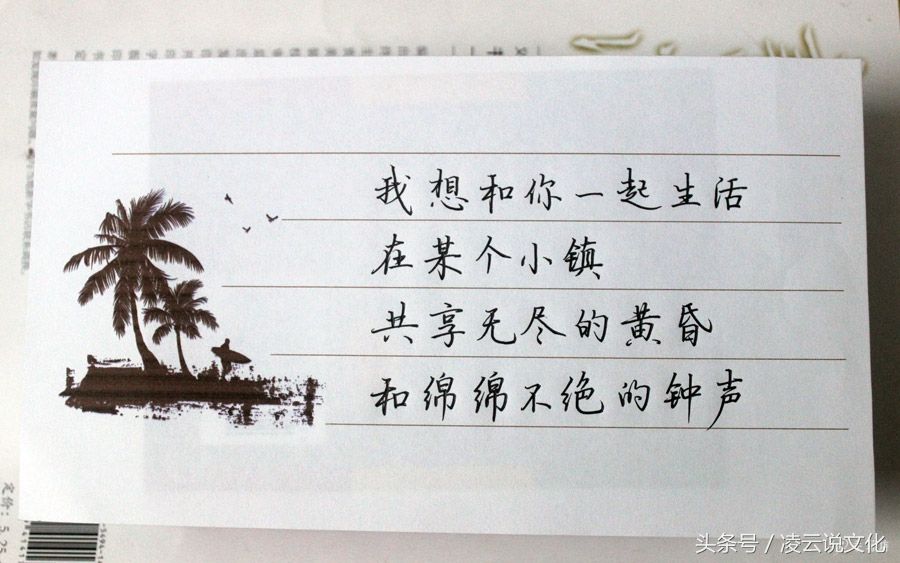 我想和你一起生活
在某个小镇
共享无尽的黄昏
和绵绵不绝的钟声
定价：5.25
头条号／凌云说文化